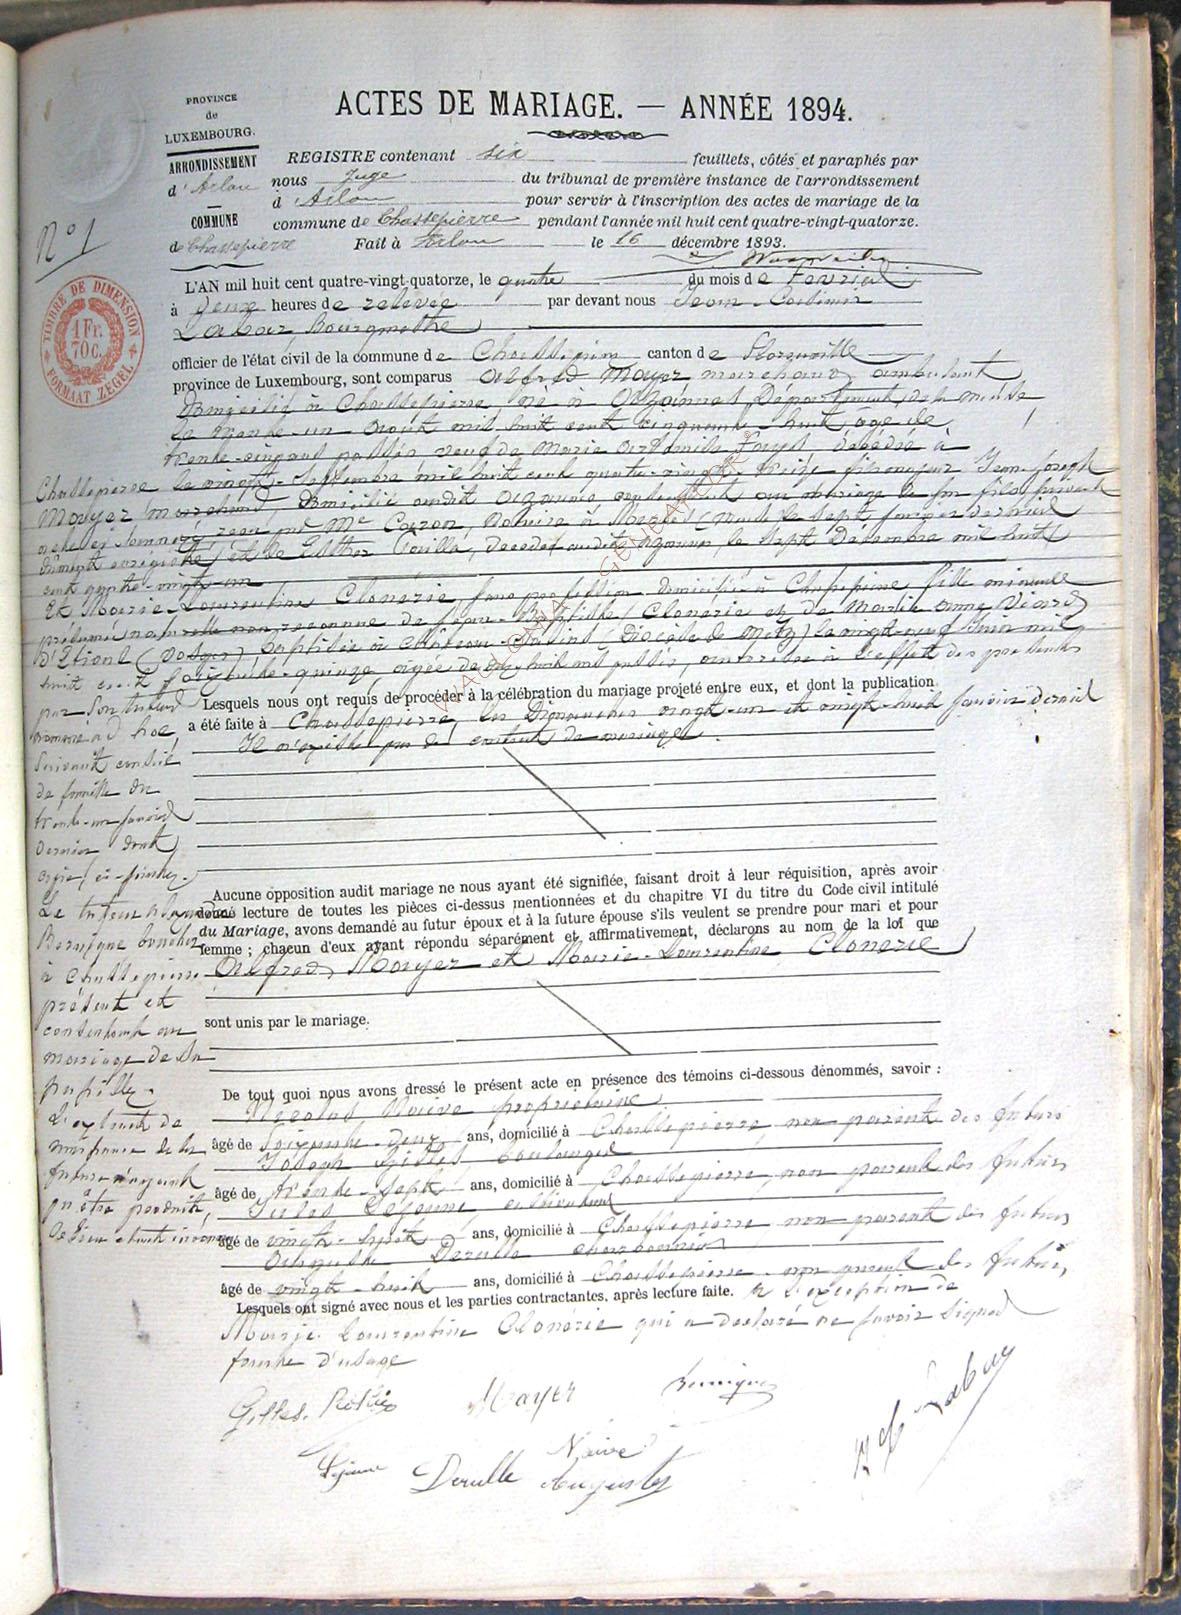 PROVINCE
de
LUXEMBOURG.
ARRONDISSEMENT
d'Arlon
COMMUNE
de Chassepierre
N° 1
TIMBRE DE DIMENSION
1 Fr.
70 C.
FORMAAT ZEGEL
ACTES DE MARIAGE. — ANNÉE 1894.
REGISTRE contenant six feuillets, côtés et paraphés par
nous Juge du tribunal de première instance de l'arrondissement
d Arlon pour servir à l'inscription des actes de mariage de la
commune de Chassepierre pendant l'année mil huit cent quatre-vingt-quatorze.
Fait à Arlon le 16 décembre 1893.
L'AN mil huit cent quatre-vingt-quatorze, le quatre du mois de Février
à deux heures de relevée par devant nous Jean-
Labar Bourgmestre
officier de l'état civil de la commune de Chassepierre canton de Florenville
province de Luxembourg, sont comparus Alfred Mayer, marchand ambulant
domicilié à Chassepierre, né à Département de la Meuse
le trente-un Août mil huit cent cinquante-huit, âgé de
trente-cinq ans passés veuf de Marie décédée à
Chassepierre le vingt-Septembre mil huit cent quatre-vingt-treize fils majeur Jean Joseph
Mayer, marchand, domicilié audit consentant au mariage de son fils suivant
acte reçu par Me notaire à le sept janvier dernier
dûment enrégistré et de Esther décédée audit le Sept Décembre mil huit
cent quatre-vingt-un
Et Marie-Laurentine Clonerie, sans profession domiciliée à Chassepierre fille mineure
présumée naturelle non reconnue de Jean-Baptiste Clonerie et de Marie Anne
(Vosges) baptisée à Château-Salins (Diocèse de Metz) le vingt-neuf Juin mil
huit cent soixante-quinze, âgée de dix huit ans passés, autorisée à l'effet des présentes
par son tuteur
nommé ad hoc
Suivant conseil
de famille du
trente-un janvier
dernier dont
copie ci-jointe.
Le tuteur
à Chassepierre
présent et
consentant au
mariage de sa
pupille.
L'extrait de
naissance de la
future n'ayant
pu être produit,
le lieu étant inconnu
Lesquels nous ont requis de procéder à la célébration du mariage projeté entre eux, et dont la publication
a été faite à Chassepierre, les Dimanches vingt-un et vingt-huit janvier dernier
Il n'existe pas de contrat de mariage.
Aucune opposition audit mariage ne nous ayant été signifiée, faisant droit à leur réquisition, après avoir
donné lecture de toutes les pièces ci-dessus mentionnées et du chapitre VI du titre du Code civil intitulé
du Mariage, avons demandé au futur époux et à la future épouse s'ils veulent se prendre pour mari et pour
femme ; chacun d'eux ayant répondu séparément et affirmativement, déclarons au nom de la loi que
Alfred Mayer et Marie-Laurentine Clonerie
sont unis par le mariage.
De tout quoi nous avons dressé le présent acte en présence des témoins ci-dessous dénommés, savoir :
Nicolas Naive propriétaire
âgé de soixante-deux ans, domicilié à Chassepierre, non parent des futurs
Joseph Gilles, boulanger
âgé de trente-sept ans, domicilié à Chassepierre, non parent des futurs
Jules Lejeune, cultivateur
âgé de vingt-sept ans, domicilié à Chassepierre non parent des futurs
Auguste Derulle charbonnier
âgé de vingt-huit ans, domicilié à Chassepierre non parent des futurs,
Lesquels ont signé avec nous et les parties contractantes, après lecture faite. à l'exception de
Marie Laurentine Clonerie qui a déclaré ne savoir signer
faute d'usage
Gilles Mayer
Naive
Lejeune Derulle Auguste
Labar